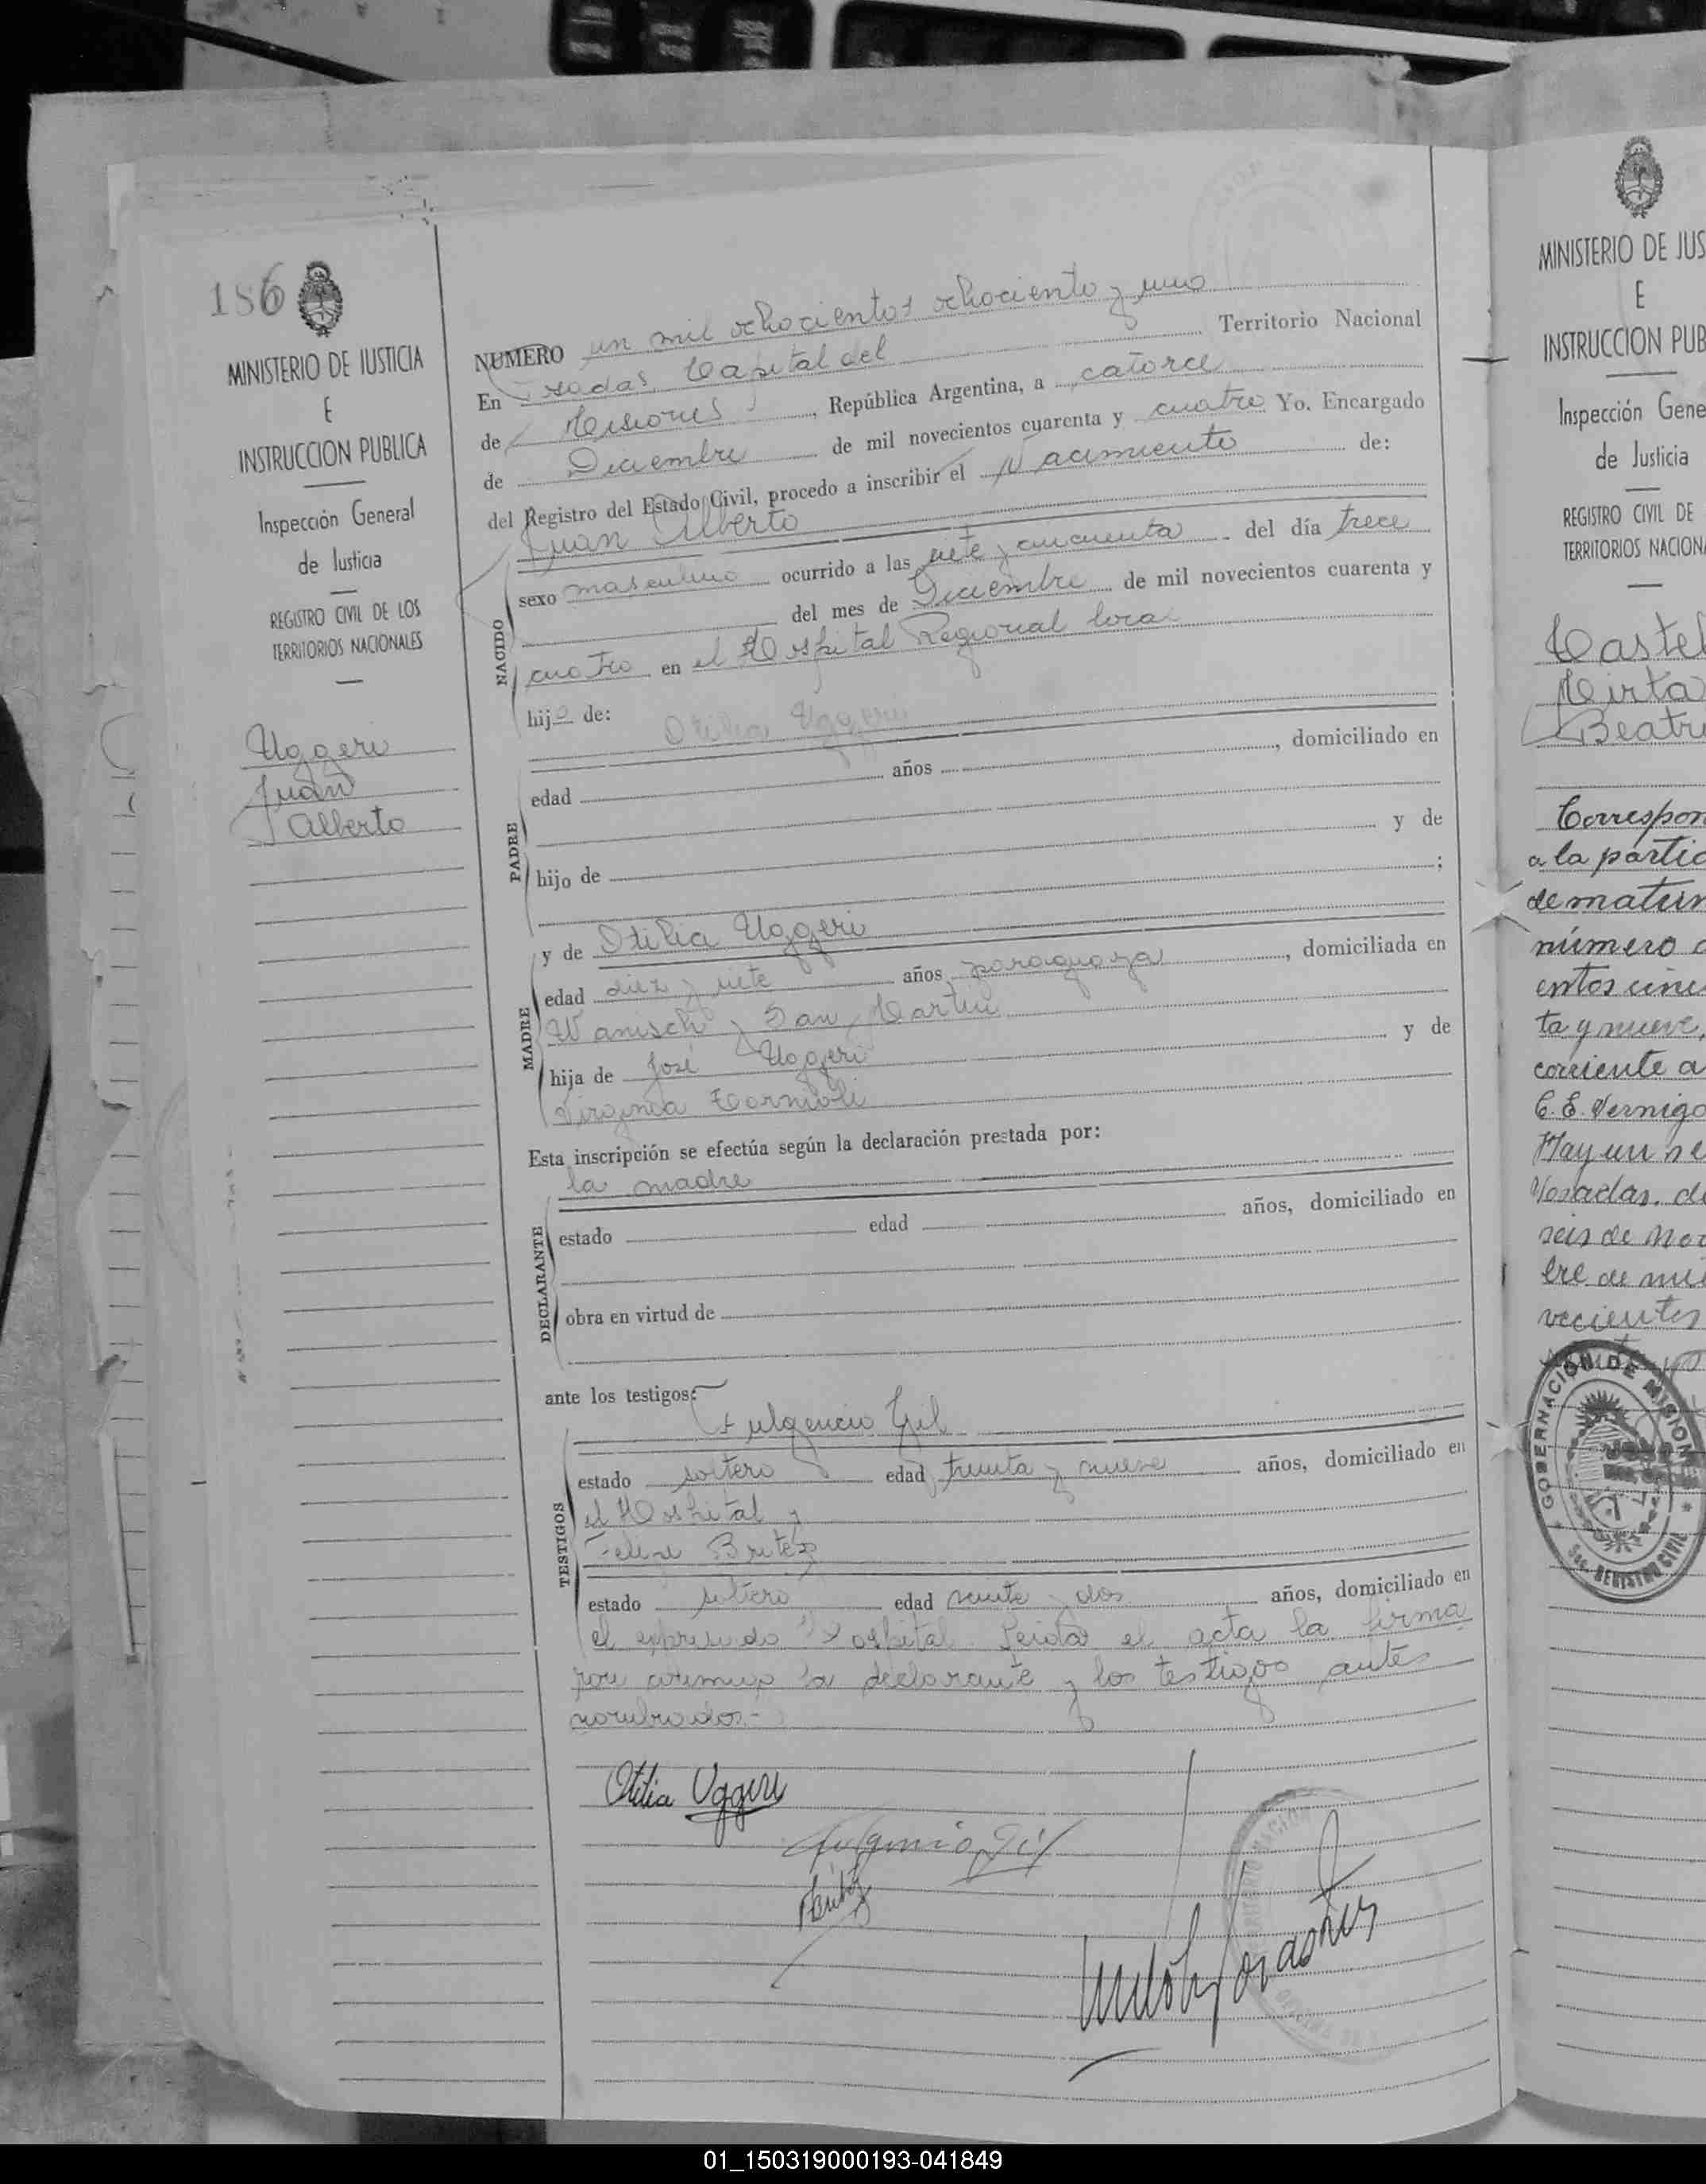 186
MINISTERIO DE JUSTICIA
E
INSTRUCCION PUBLICA
Inspección General
de Justicia
REGISTRO CIVIL DE LOS
TERRITORIOS NACIONALES
Uggeri
Juan
Alberto
NUMERO un mil ochocientos ochociento y uno
En Posadas, Capital del Territorio Nacional
de Misiones, República Argentina, a catorce
de Diciembre de mil novecientos cuarenta y cuatro Yo, Encargado
del Registro del Estado Civil, procedo a inscribir el Nacimiento de:
Juan Alberto
NACIDO
sexo masculino ocurrido a las siete y cincuenta del día trece
del mes de Diciembre de mil novecientos cuarenta y
cuatro en el Hospital Regional local
hijo de: Otilia Uggeri
PADRE
edad años, domiciliado en
y de
hijo de ;
MADRE
y de Otilia Uggeri
edad diez y siete años, paraguaya, domiciliada en
Wanisch y San Martin
hija de José Uggeri y de
Virginia Tornioli
Esta inscripción se efectúa según la declaración prestada por:
la madre
DECLARANTE
estado edad años, domiciliado en
obra en virtud de
ante los testigos:
Fulgencio Gil
TESTIGOS
estado soltero edad treinta y nueve años, domiciliado en
el Hospital y
Felipe Britez
estado soltero edad veinte y dos años, domiciliado en
el expresado Hospital. Leida el acta la firma
por conmigo la declarante y los testigos antes
nombrados.-
Otilia Uggeri
Fulgencio Gil
FBritez
MINISTERIO DE JUS
E
INSTRUCCION PUB
Inspección Gene
de Justicia
REGISTRO CIVIL DE
TERRITORIOS NACION
Castel
Mirta
Beatri
Correspon
a la partid
de matrim
número
entos cinc
ta y nueve,
corriente a
C. E. Vernigo
Hay un se
Posadas, de
seis de Nov
bre de mil
vecientos
GOBERNACION DE MISIONES
REGISTRO CIVIL
01_150319000193-041849